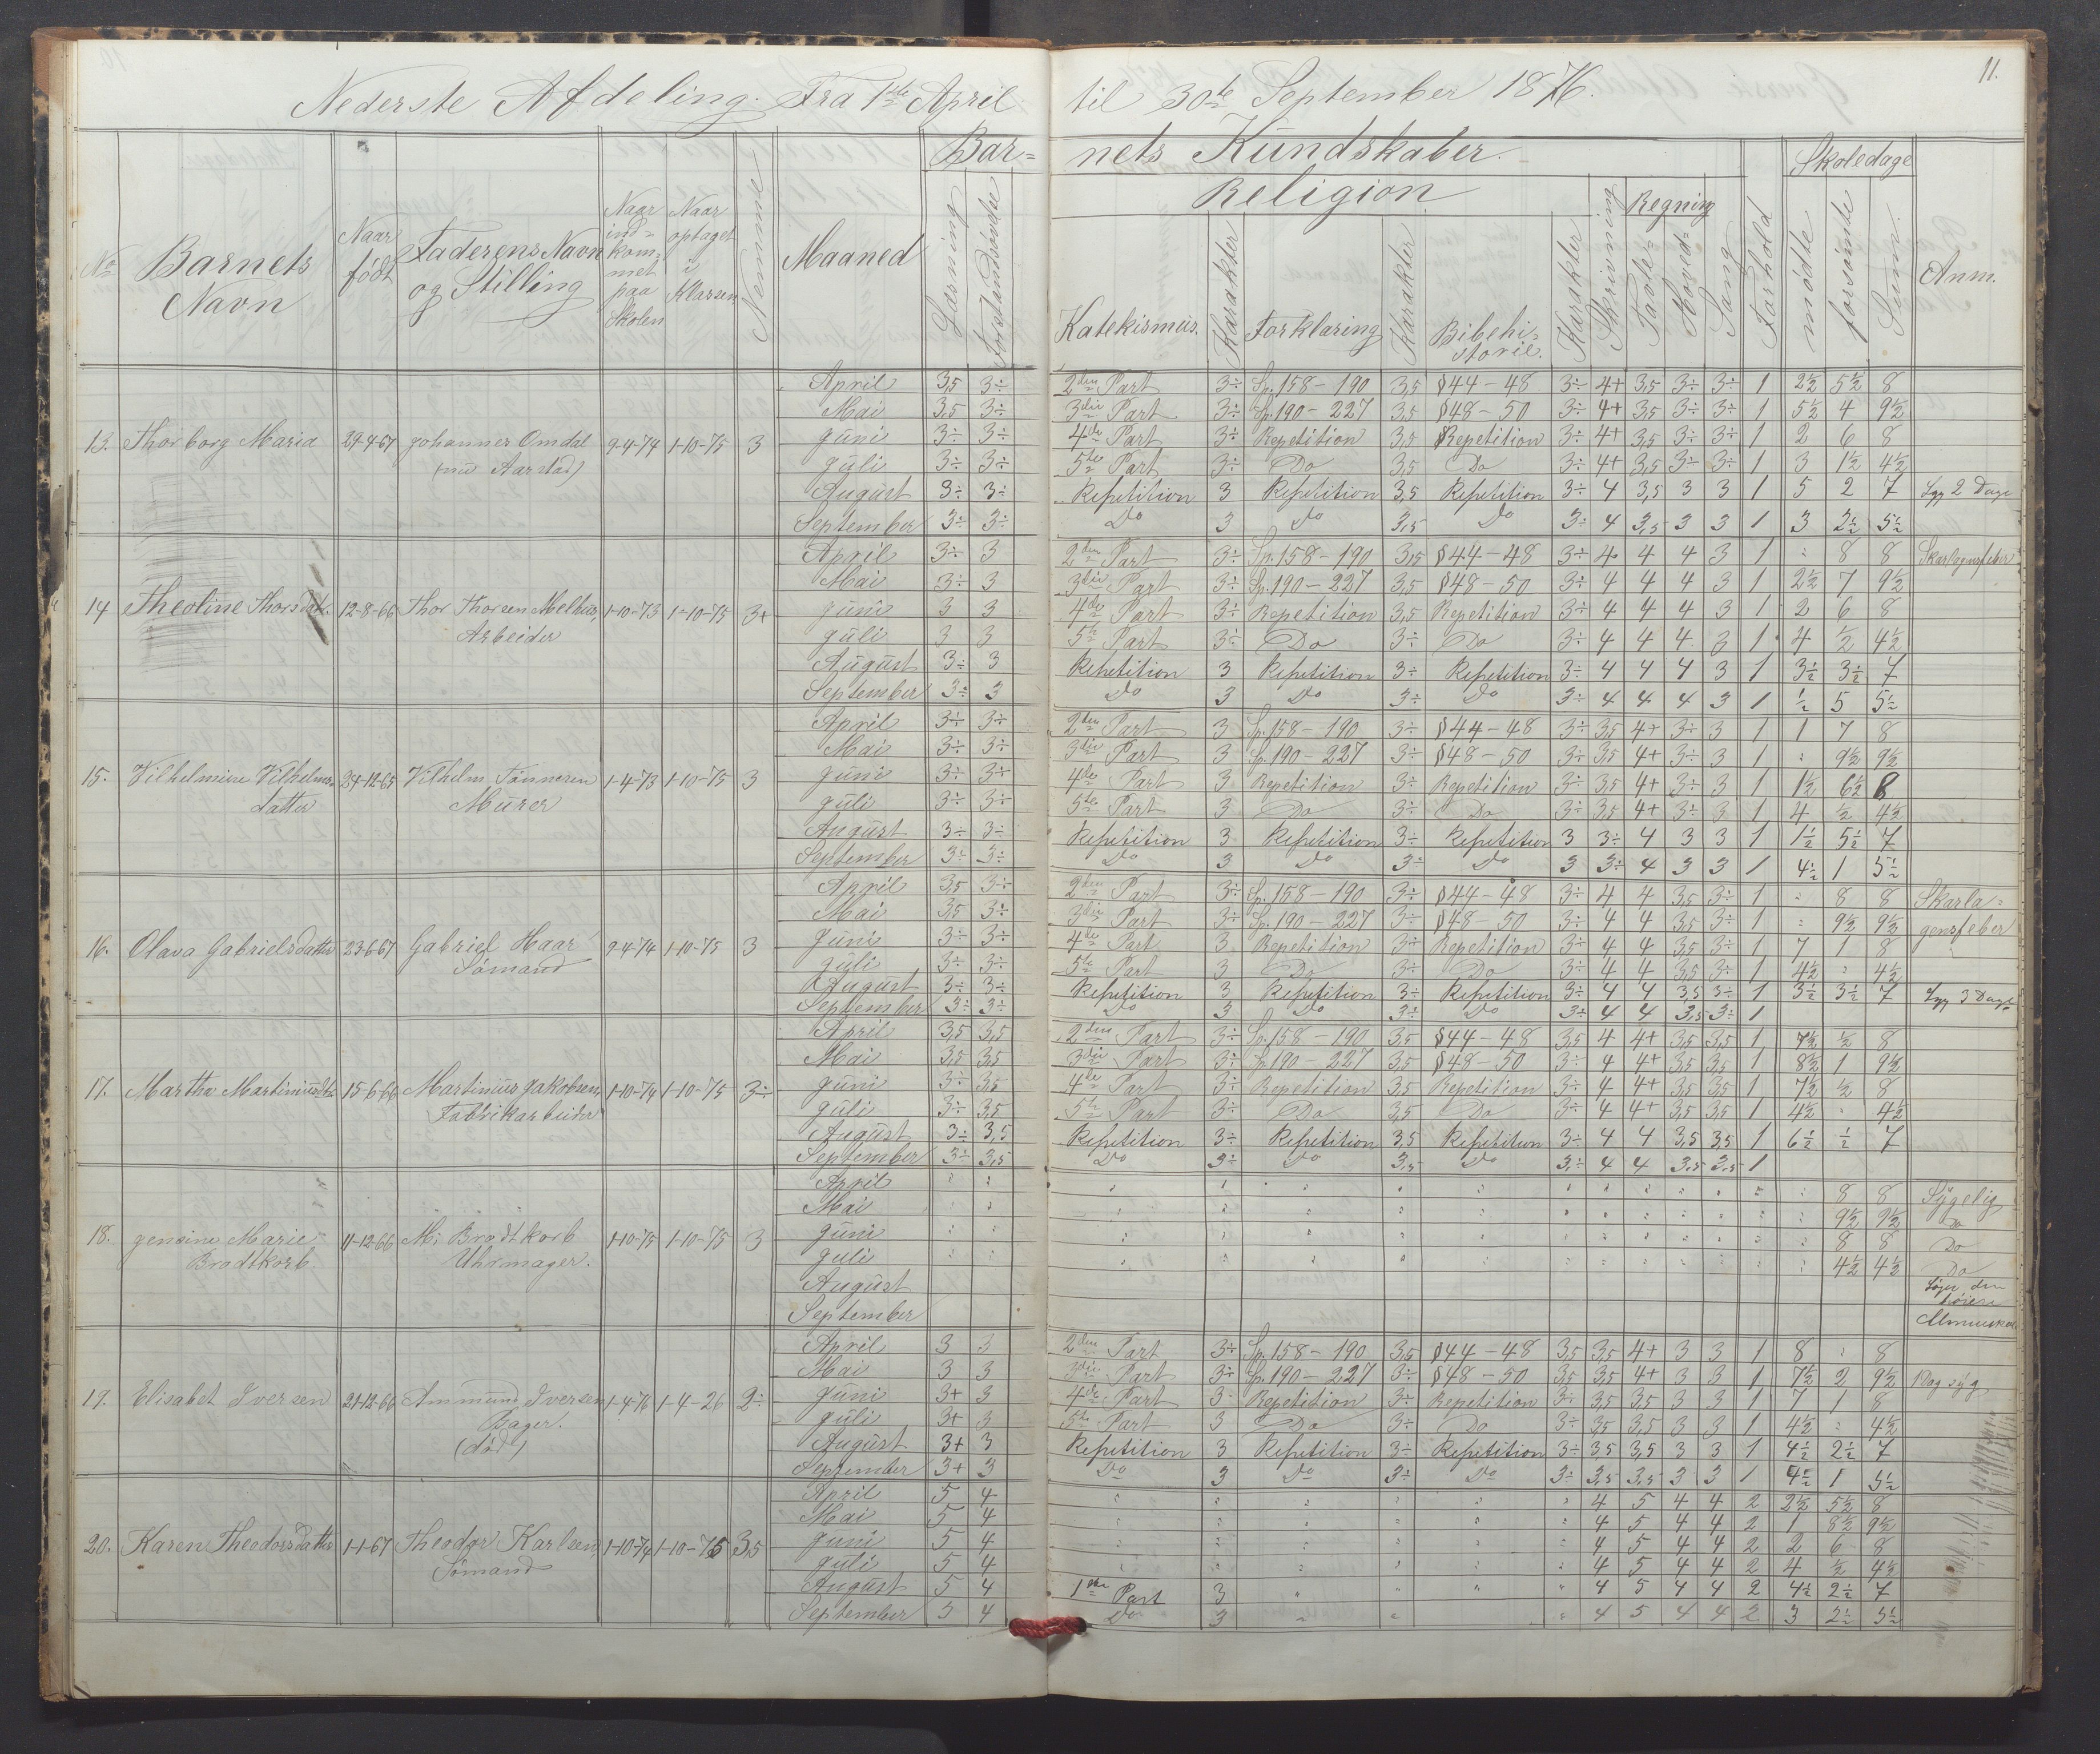 11.
Nederste Afdeling. Fra 1ste April til 30te September 1876.
Bar= nets Kundskaber. Skoledage
Religion Regning
No Barnets Navn Naar født Faderens Navn og Stilling Naar ind=kommet paa Skolen Naar optaget i Klassen Nemme Maaned Læsning Forstandsøvelse Katekismus. Karakter Forklaring Karakter Bibelhi=storie. Karakter Skrivning Tavle= Hoved= Sang Forhold mødte forsømte Sum. Anm.
April 3,5 3÷ 2den Part 3÷ Sp. 158-190 3,5 §44-48 3÷ 4+ 3,5 3÷ 3÷ 1 2½ 5½ 8
Mai 3,5 3÷ 3die Part 3÷ Sp. 190-227 3,5 §48-50 3÷ 4+ 3,5 3÷ 3÷ 1 5½ 4 9½
13. Thorborg Maria 24-4-67 Johannes Omdal 9-4-74 1-10-75 3 Juni 3÷ 3÷ 4de Part 3÷ Repetition 3,5 Repetition 3÷ 4+ 3,5 3÷ 3÷ 1 2 6 8
(nu Aarstad) Juli 3÷ 3÷ 5te Part 3÷ Do 3,5 Do 3÷ 4+ 3,5 3÷ 3÷ 1 3 1½ 4½
August 3÷ 3÷ Repetition 3 Repetition 3,5 Repetition 3÷ 4 3,5 3 3 1 5 2 7 Syg 2 Dage
September 3÷ 3÷ Do 3 Do 3,5 Do 3÷ 4 3,5 3 3 1 3 2½ 5½
April 3÷ 3 2den Part 3÷ Sp. 158-190 3,5 §44-48 3÷ 4 4 4 3 1 : 8 8 Skarlagensfeber
Mai 3÷ 3 3die Part 3÷ Sp. 190-227 3,5 §48-50 3÷ 4 4 4 3 1 2½ 7 9½
14 Theoline Thorsdtr. 12-8-66 Thor Thorsen Melhus, 1-10-73 1-10-75 3+ Juni 3 3 4de Part 3÷ Repetition 3,5 Repetition 3÷ 4 4 4 3 1 2 6 8
Arbeider Juli 3 3 5te Part 3÷ Do 3÷ Do 3÷ 4 4 4 3 1 4 ½ 4½
August 3÷ 3 Repetition 3 Repetition 3÷ Repetition 3÷ 4 4 4 3 1 3½ 3½ 7
September 3÷ 3 Do 3 Do 3÷ Do 3÷ 4 4 4 3 1 ½ 5 5½
April 3÷ 3÷ 2den Part 3 Sp. 158-190 3÷ §44-48 3÷ 3,5 4+ 3÷ 3 1 1 7 8
Mai 3÷ 3÷ 3die Part 3 Sp. 190-227 3÷ §48-50 3÷ 3,5 4+ 3÷ 3 1 : 9½ 9½
15. Vilhelmine Vilhelms= 24-12-65 Vilhelm Tønnesen 1-4-73 1-10-75 3 Juni 3÷ 3÷ 4de Part 3 Repetition 3÷ Repetition 3÷ 3,5 4+ 3÷ 3 1 1½ 6½ 8
datter Murer Juli 3÷ 3÷ 5te Part 3 Do 3÷ Do 3÷ 3,5 4+ 3÷ 3 1 4 ½ 4½
August 3÷ 3÷ Repetition 3 Repetition 3÷ Repetition 3 3÷ 4 3 3 1 1½ 5½ 7
September 3÷ 3÷ Do 3 Do 3÷ Do 3 3÷ 4 3 3 1 4½ 1 5½
April 3,5 3÷ 2den Part 3÷ Sp. 158-190 3÷ §44-48 3÷ 4 4 3,5 3÷ 1 : 8 8 Skarla=
Mai 3,5 3÷ 3die Part 3÷ Sp. 190-227 3÷ §48-50 3÷ 4 4 3,5 3÷ 1 : 9½ 9½ gensfeber
16. Olava Gabrielsdatter 23-6-67 Gabriel Haar 9-4-74 1-10-75 3 Juni 3÷ 3÷ 4de Part 3 Repetition 3÷ Repetition 3÷ 4 4 3,5 3÷ 1 7 1 8
Sømand Juli 3÷ 3÷ 5te Part 3 Do 3÷ Do 3÷ 4 4 3,5 3÷ 1 4½ : 4½
August 3÷ 3÷ Repetition 3 Repetition 3÷ Repetition 3÷ 4 4 3,5 3÷ 1 3½ 3½ 7 Syg 3 Dage
September 3÷ 3÷ Do 3 Do 3÷ Do 3÷ 4 4 3,5 3÷ 1
April 3,5 3,5 2den Part 3÷ Sp. 158-190 3,5 §44-48 3,5 4 4+ 3,5 3,5 1 7½ ½ 8
Mai 3,5 3,5 3die Part 3÷ Sp. 190-227 3,5 §48-50 3÷ 4 4+ 3,5 3,5 1 8½ 1 9½
17. Martha Martiniusdtr. 15-6-66 Martinius Jakobsen, 1-10-74 1-10-75 3÷ Juni 3÷ 3,5 4de Part 3÷ Repetition 3,5 Repetition 3÷ 4 4+ 3,5 3,5 1 7½ ½ 8
Fabrikarbeider Juli 3÷ 3,5 5te Part 3÷ Do 3,5 Do 3÷ 4 4+ 3,5 3,5 1 4½ : 4½
August 3÷ 3,5 Repetition 3÷ Repetition 3,5 Repetition 3÷ 4 4 3,5 3,5 1 6½ ½ 7
September 3÷ 3,5 Do 3÷ Do 3,5 Do 3÷ 4 4 3,5 3,5 1
April : : : : : : : : : : : : : : : 8 8 Sygelig
Mai : : : : : : : : : : : : : : : 9½ 9½ Do
18. Jensine Marie 11-12-66 M. Brodtkorb 1-10-75 1-10-75 3 Juni : : : : : : : : : : : : : : : 8 8 Do
Brodtkorb Uhrmager. Juli : : : : : : : : : : : : : : : 4½ 4½ Do
August Søger den høiere
September Almueskole
April 3 3 2den Part 3÷ Sp. 158-190 3,5 §44-48 3,5 3,5 4+ 3 3 1 8 : 8
Mai 3 3 3die Part 3÷ Sp. 190-227 3÷ §48-50 3,5 3,5 4+ 3 3 1 7½ 2 9½ 1 Dag syg
19. Elisabet Iversen 21-12-66 Ammund Iversen 1-4-76 1-4-26 2÷ Juni 3+ 3 4de Part 3 Repetition 3÷ Repetition 3÷ 3,5 3,5 3 3 1 7 1 8
Bager. Juli 3+ 3 5te Part 3 Do 3÷ Do 3÷ 3,5 3,5 3 3 1 4½ : 4½
(død) August 3+ 3 Repetition 3 Repetition 3÷ Repetition 3÷ 3,5 3,5 3 3 1 4½ 2½ 7
September 3+ 3 Do 3 Do 3÷ Do 3÷ 3,5 3,5 3 3 1 4½ 1 5½
April 5 4 : : : : : : 4 5 4 4 2 2½ 5½ 8
Mai 5 4 : : : : : : 4 5 4 4 2 1 8½ 9½
20. Karen Theodorsdatter 1-1-67 Theodor Karlsen, 1-10-74 1-10-75 3,5 Juni 5 4 : : : : : : 4 5 4 4 2 2 6 8
Sømand Juli 5 4 : : : : : : 4 5 4 4 2 4 ½ 4½
August 5 4 1ste Part 3 " " " " 4 5 4 4 2 4½ 2½ 7
September 5 4 Do 3 " " " 4 5 4 4 2 3 2½ 5½